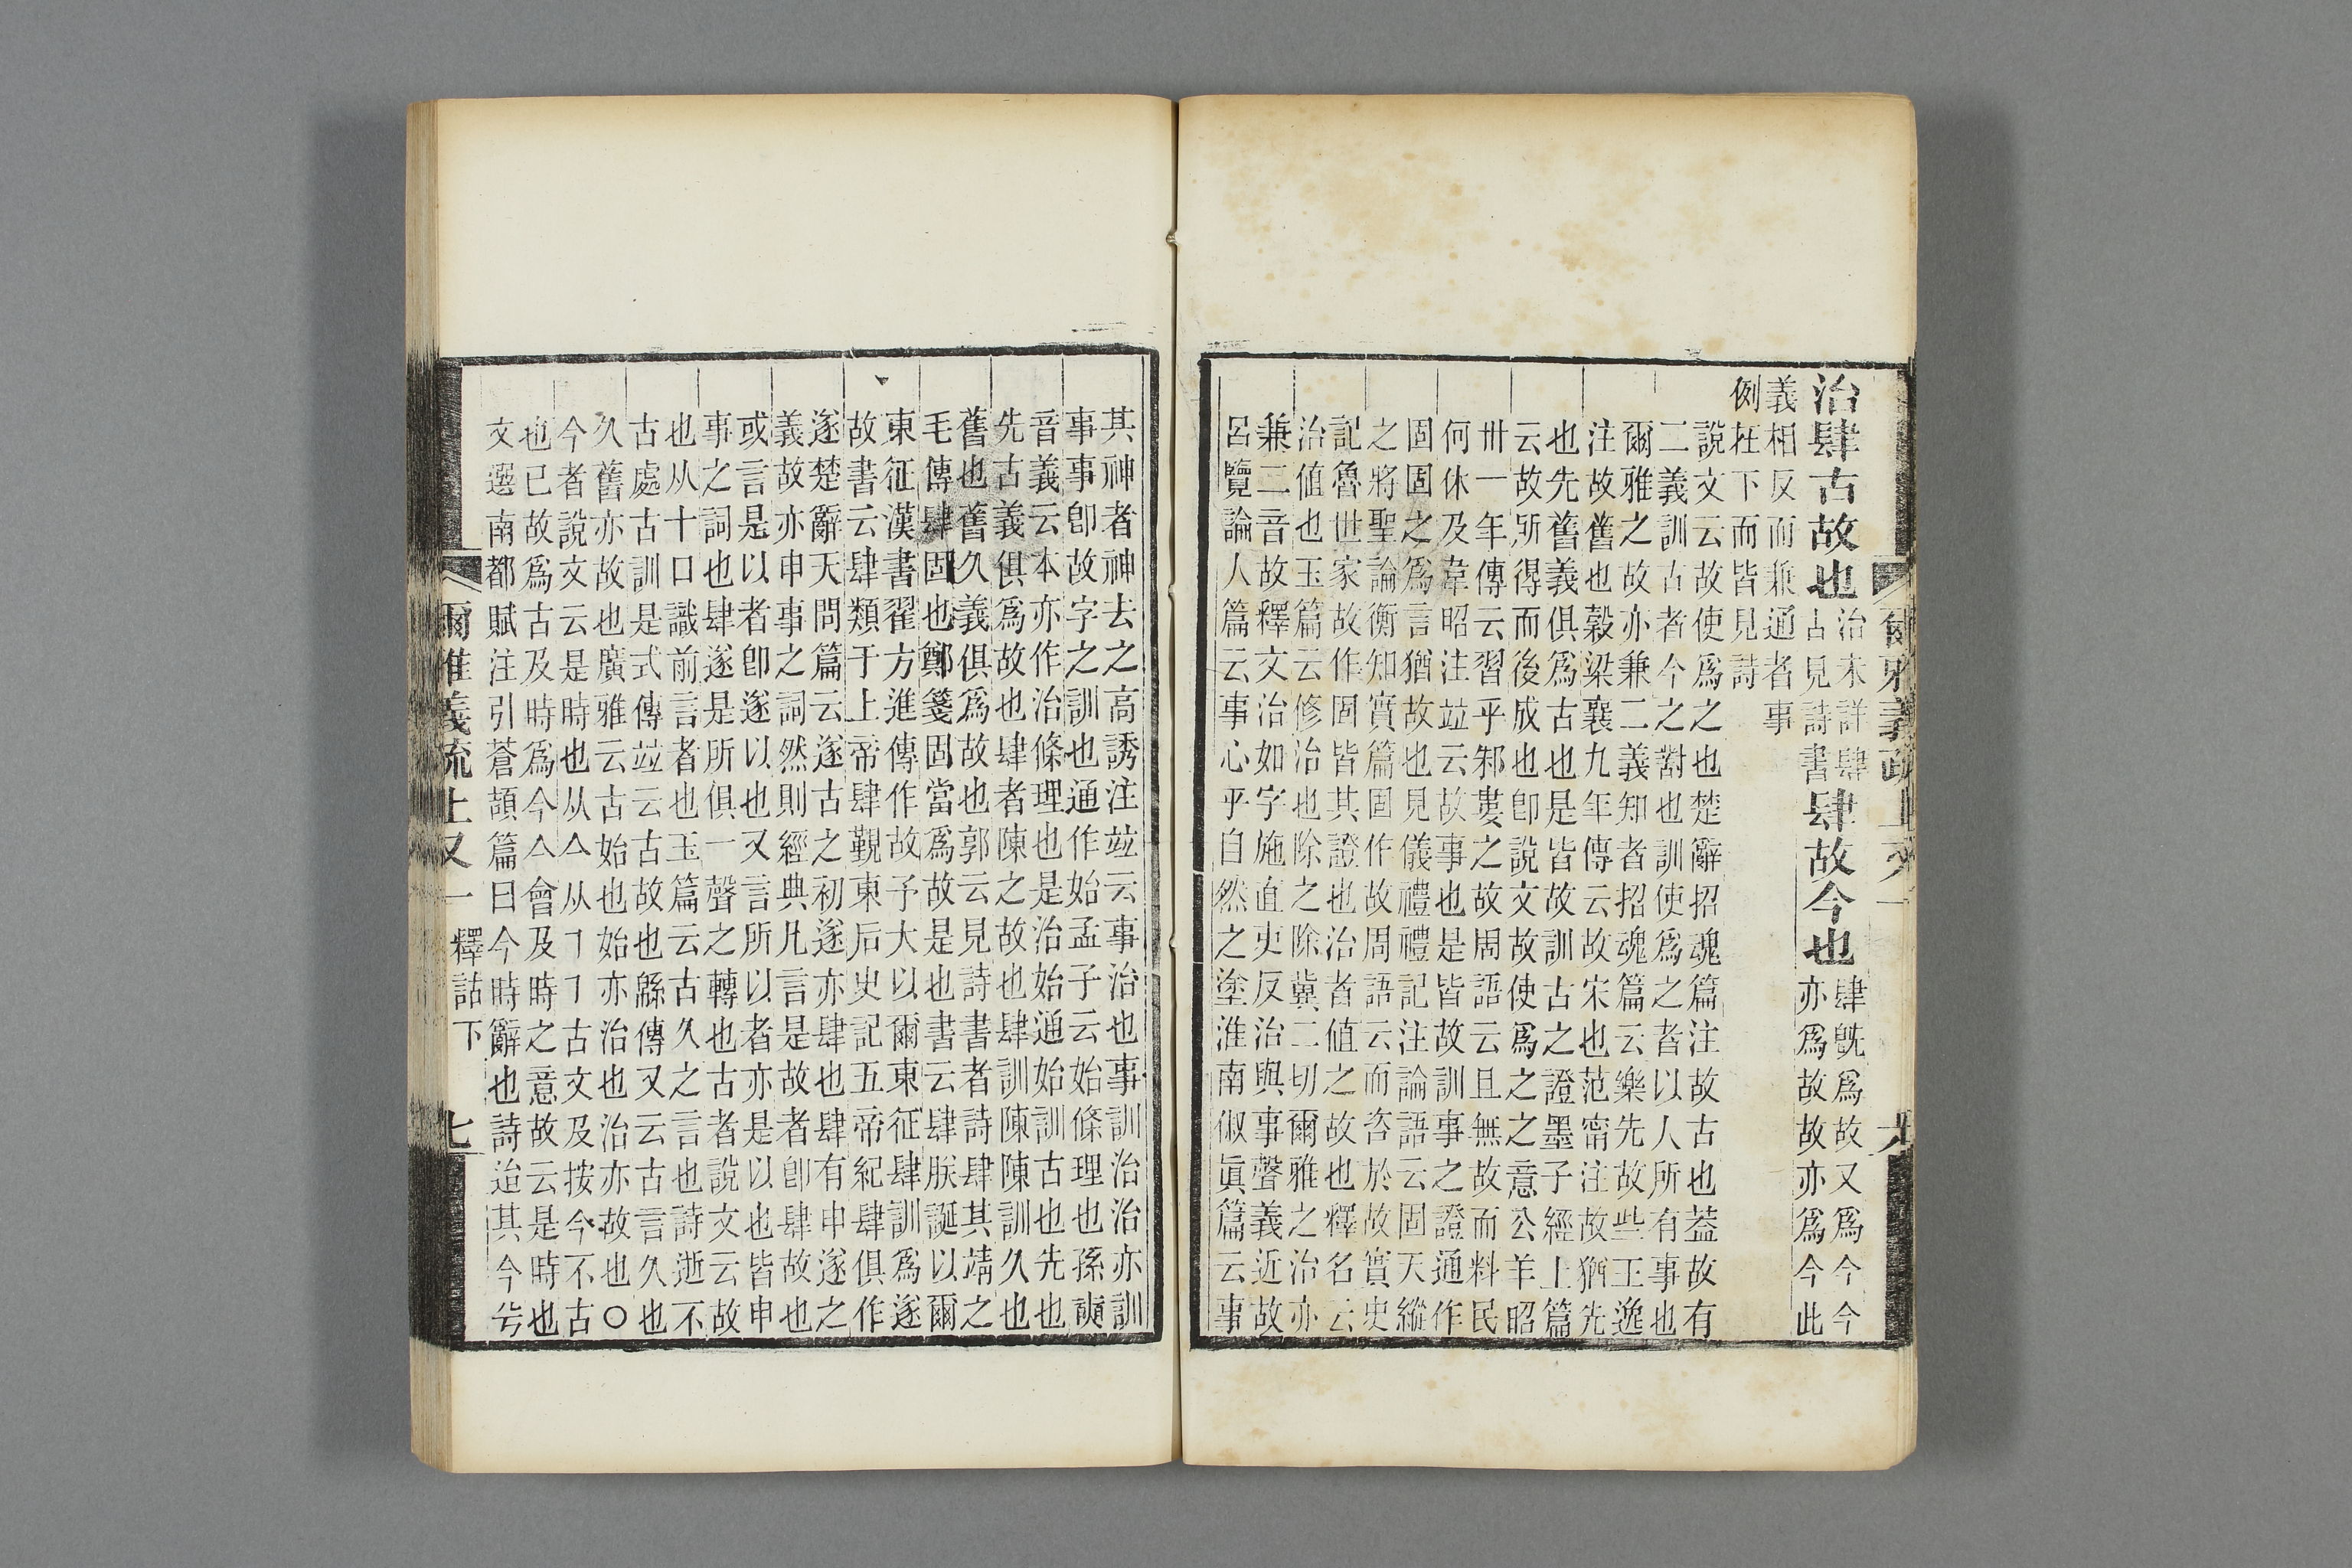 爾雅義疏上又一 六
治肆古故也治未詳肆
古見詩書肆故今也肆旣爲故又爲今今
亦爲故故亦爲今此
義相反而兼通者事
例在下而皆見詩
說文云故使爲之也楚辭招魂篇注故古也葢故有
二義訓古者今之對也訓使爲之者以人所有事也
爾雅之故亦兼二義知者招魂篇云樂先故些王逸
注故舊也穀梁襄九年傳云故宋也范甯注故猶先
也先舊義俱爲古也是皆故訓古之證墨子經上篇
云故所得而後成也卽說文故使爲之之意公羊昭
卅一年傳云習乎邾婁之故周語云且無故而料民
何休及韋昭注竝云故事也是皆故訓事之證通作
固固之爲言猶故也見儀禮禮記注論語云固天縱
之將聖論衡知實篇固作故周語云而咨於故實史
記魯世家故作固皆其證也治者值之故也釋名云
治值也玉篇云修治也除之除冀二切爾雅之治亦
兼二音故釋文治如字施直吏反治與事聲義近故
呂覽論人篇云事心乎自然之塗淮南俶眞篇云事
其神者神去之高誘注竝云事治也事訓治治亦訓
事事卽故字之訓也通作始孟子云始條理也孫奭
音義云本亦作治條理也是治始通始訓古也先也
先古義俱爲故也肆者陳之故也肆訓陳陳訓久也
舊也舊久義俱爲故也郭云見詩書者詩肆其靖之
毛傳肆固也鄭箋固當爲故是也書云肆朕誕以爾
東征漢書翟方進傳作故予大以爾東征肆訓爲遂
故書云肆類于上帝肆覲東后史記五帝紀肆俱作
遂楚辭天問篇云遂古之初遂亦肆也肆有申遂之
義故亦申事之詞然則經典凡言是故者卽肆故也
或言是以者卽遂以也又言所以者亦是以也皆申
事之詞也肆遂是所俱一聲之轉也古者說文云故
也从十口識前言者也玉篇云古久之言也詩逝不
古處古訓是式傳竝云古故也緜傳又云古言久也
久舊亦故也廣雅云古始也始亦治也治亦故也○
今者說文云是時也从亼从㇆㇆古文及按今不古
也已故爲古及時爲今亼會及時之意故云是時也
文選南都賦注引蒼頡篇曰今時辭也詩迨其今兮
爾雅義疏上又一 釋詁下 七